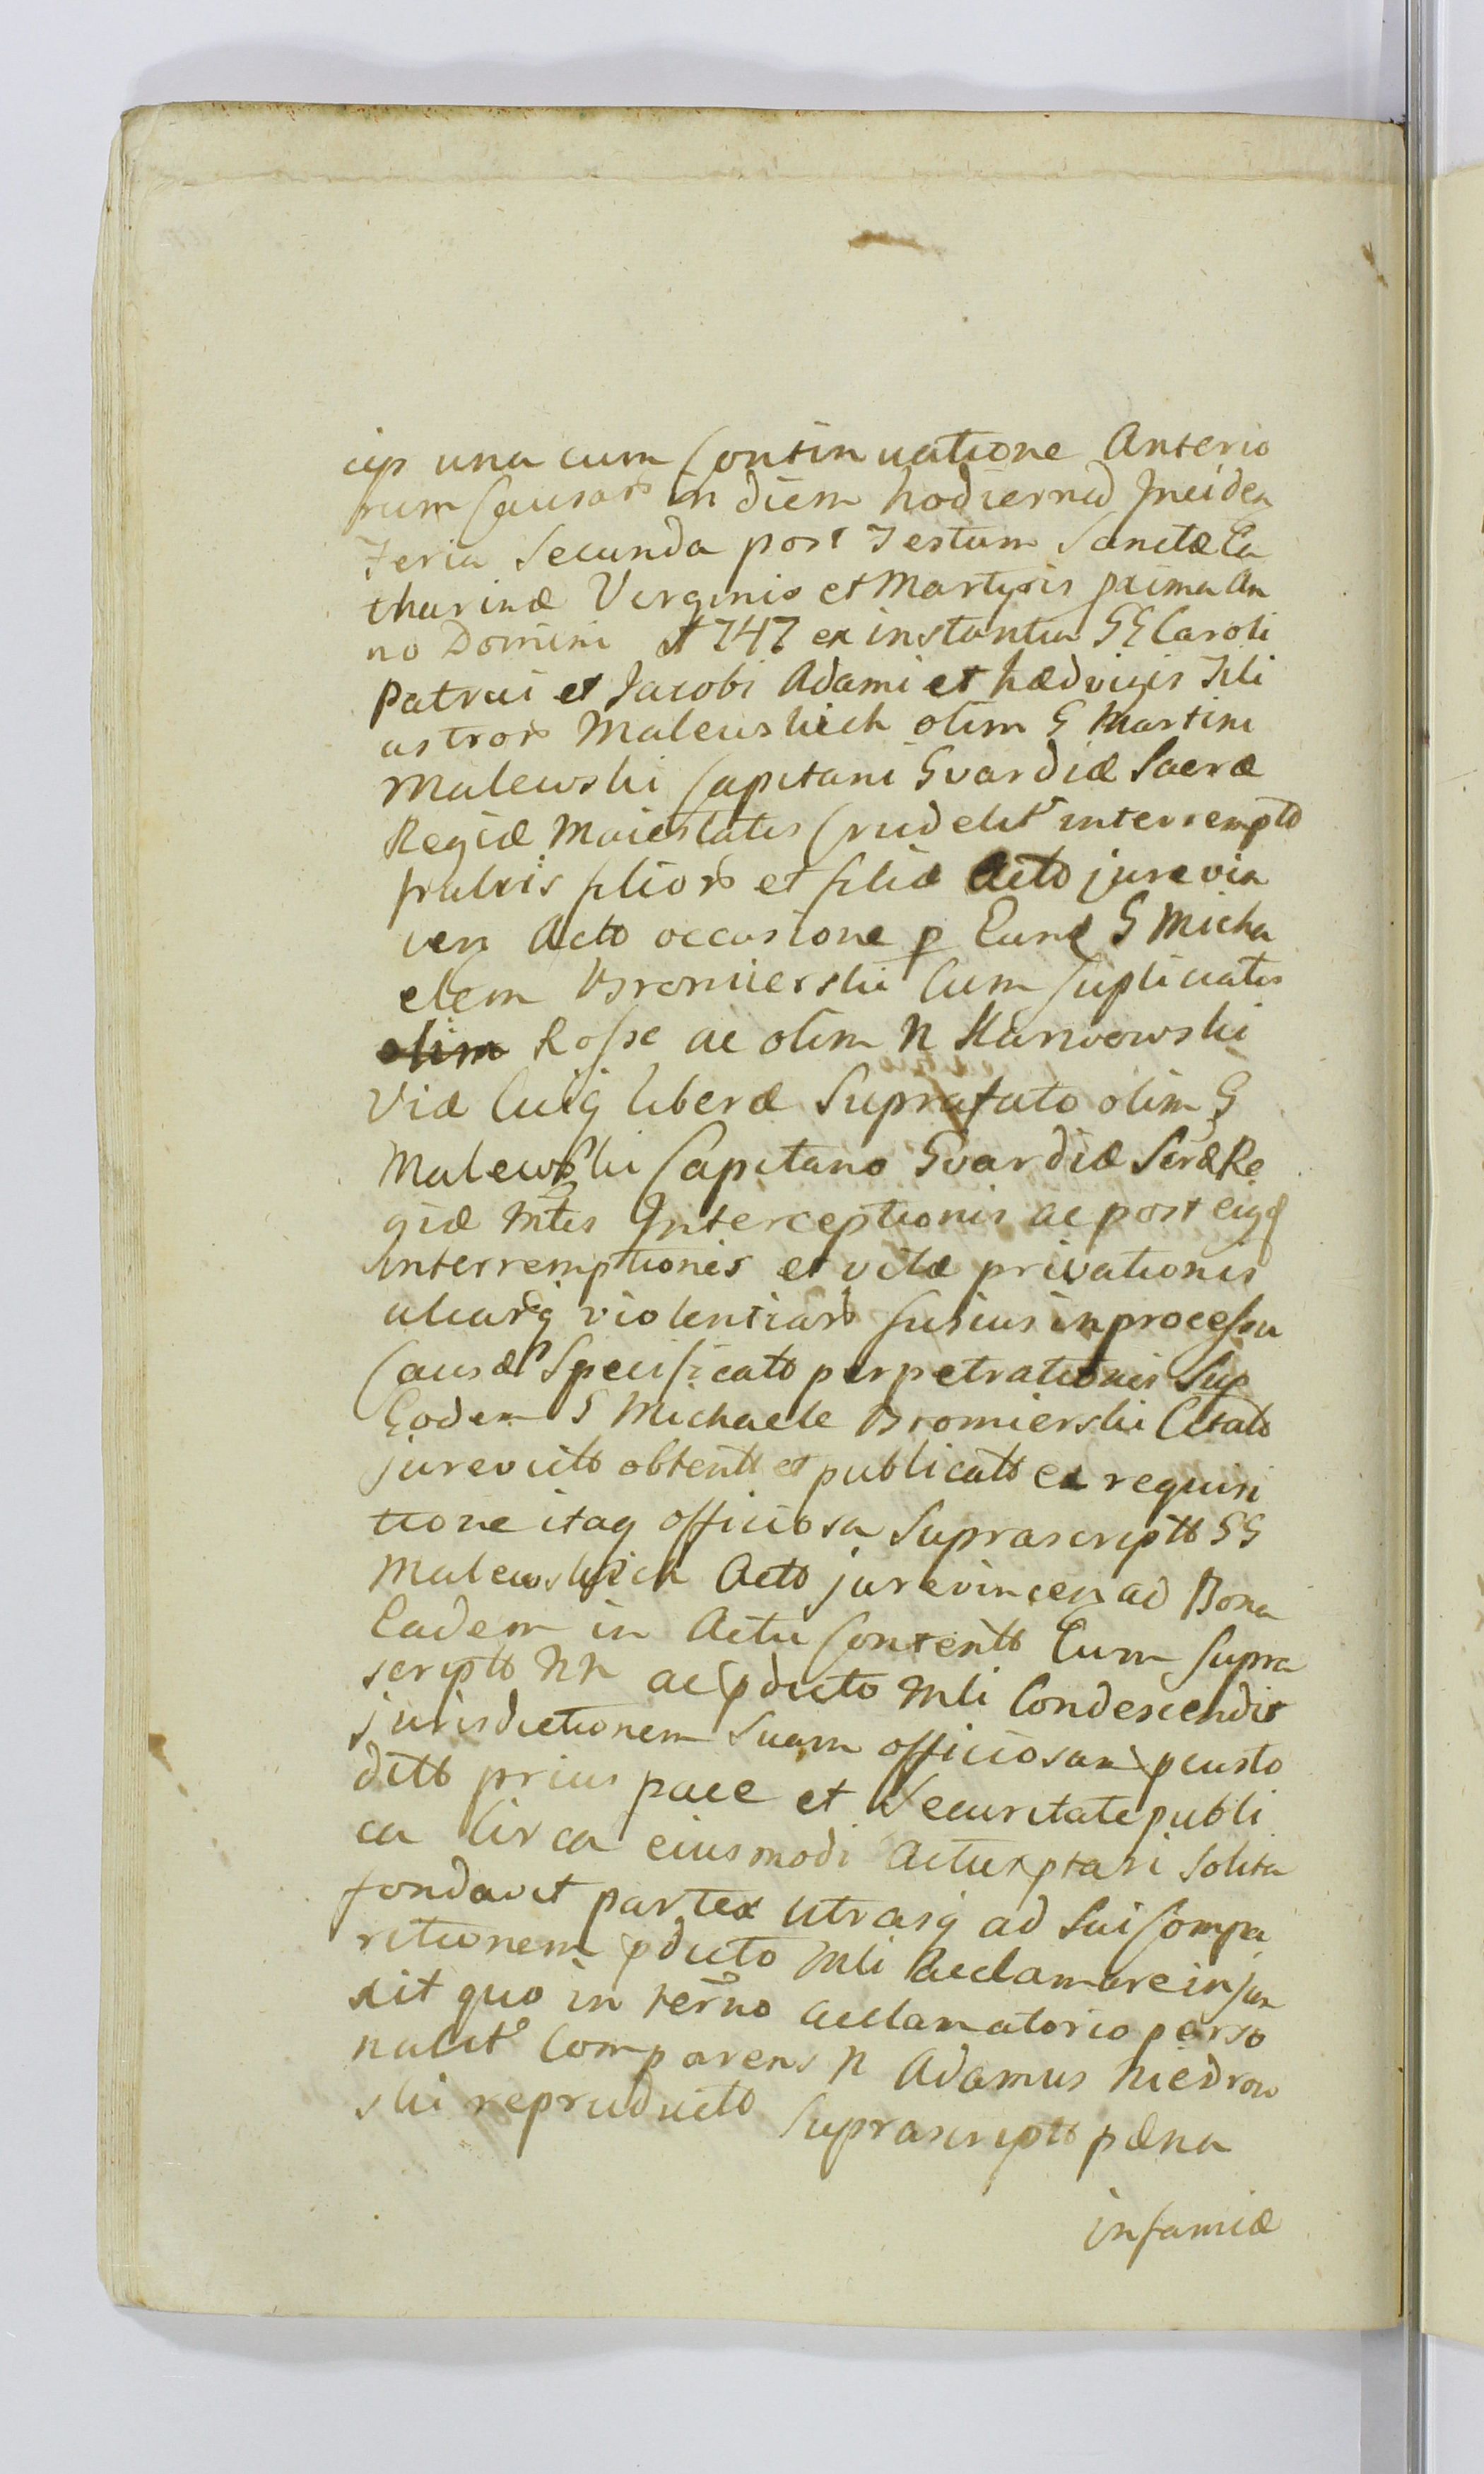 cip una cum Continuatione Anterio
rum Causar in diem hodiernā Inciden
Feria Secunda post Festum Sanctæ Ca
tharinæ Virginis et Martyris prima An
no Domini 1747 ex instantia GG Caroli
Patrui et Jacobi Adami et Hædvigis Fili
astror Malewskich olim G Martini
Malewski Capitani Gvardiæ Sacræ
Regiæ Maiestatis Crudelitr interrempto
fratris filior et filiæ Acto jurevin
cen Acto occasione p Eund G Micha
elem Bromierski Cum Cuplicatis
Rosse ac olim N Karwowski
Viæ Cuiq liberæ Suprafato olim G
Malewski Capitano Gvardiæ Scræ Re
giæ Mtis Interceptionis ac post eiqd
interremptionis et vitæ privationis
aliarq violentiar fusius in processu
Causæ Specificatt perpetrationis Sup
Eodem G Michaele Bromierski Citato
jurevictt obtentt et publicatt ex requisi
tione itaq officiosa Suprascriptt GG
Malewskich Actt jurevincen ad Bona
Eadem in Actu Contentt Cum Supra
scriptt NN ac pducto Mli Condescendit
jurisdictionem Suam officiosam pcusto
ditt prius pace et Securitate publi
ca Circa eiusmodi Actus ptari solita
fondavit partes utrasq ad Sui Compa
ritionem pducto Mli Acclamare injun
xit quo in terño acclamatorio perso
nalitr Comparens N Adamus Niedrow
ski repruductt Suprascriptt pæna
infamiæ